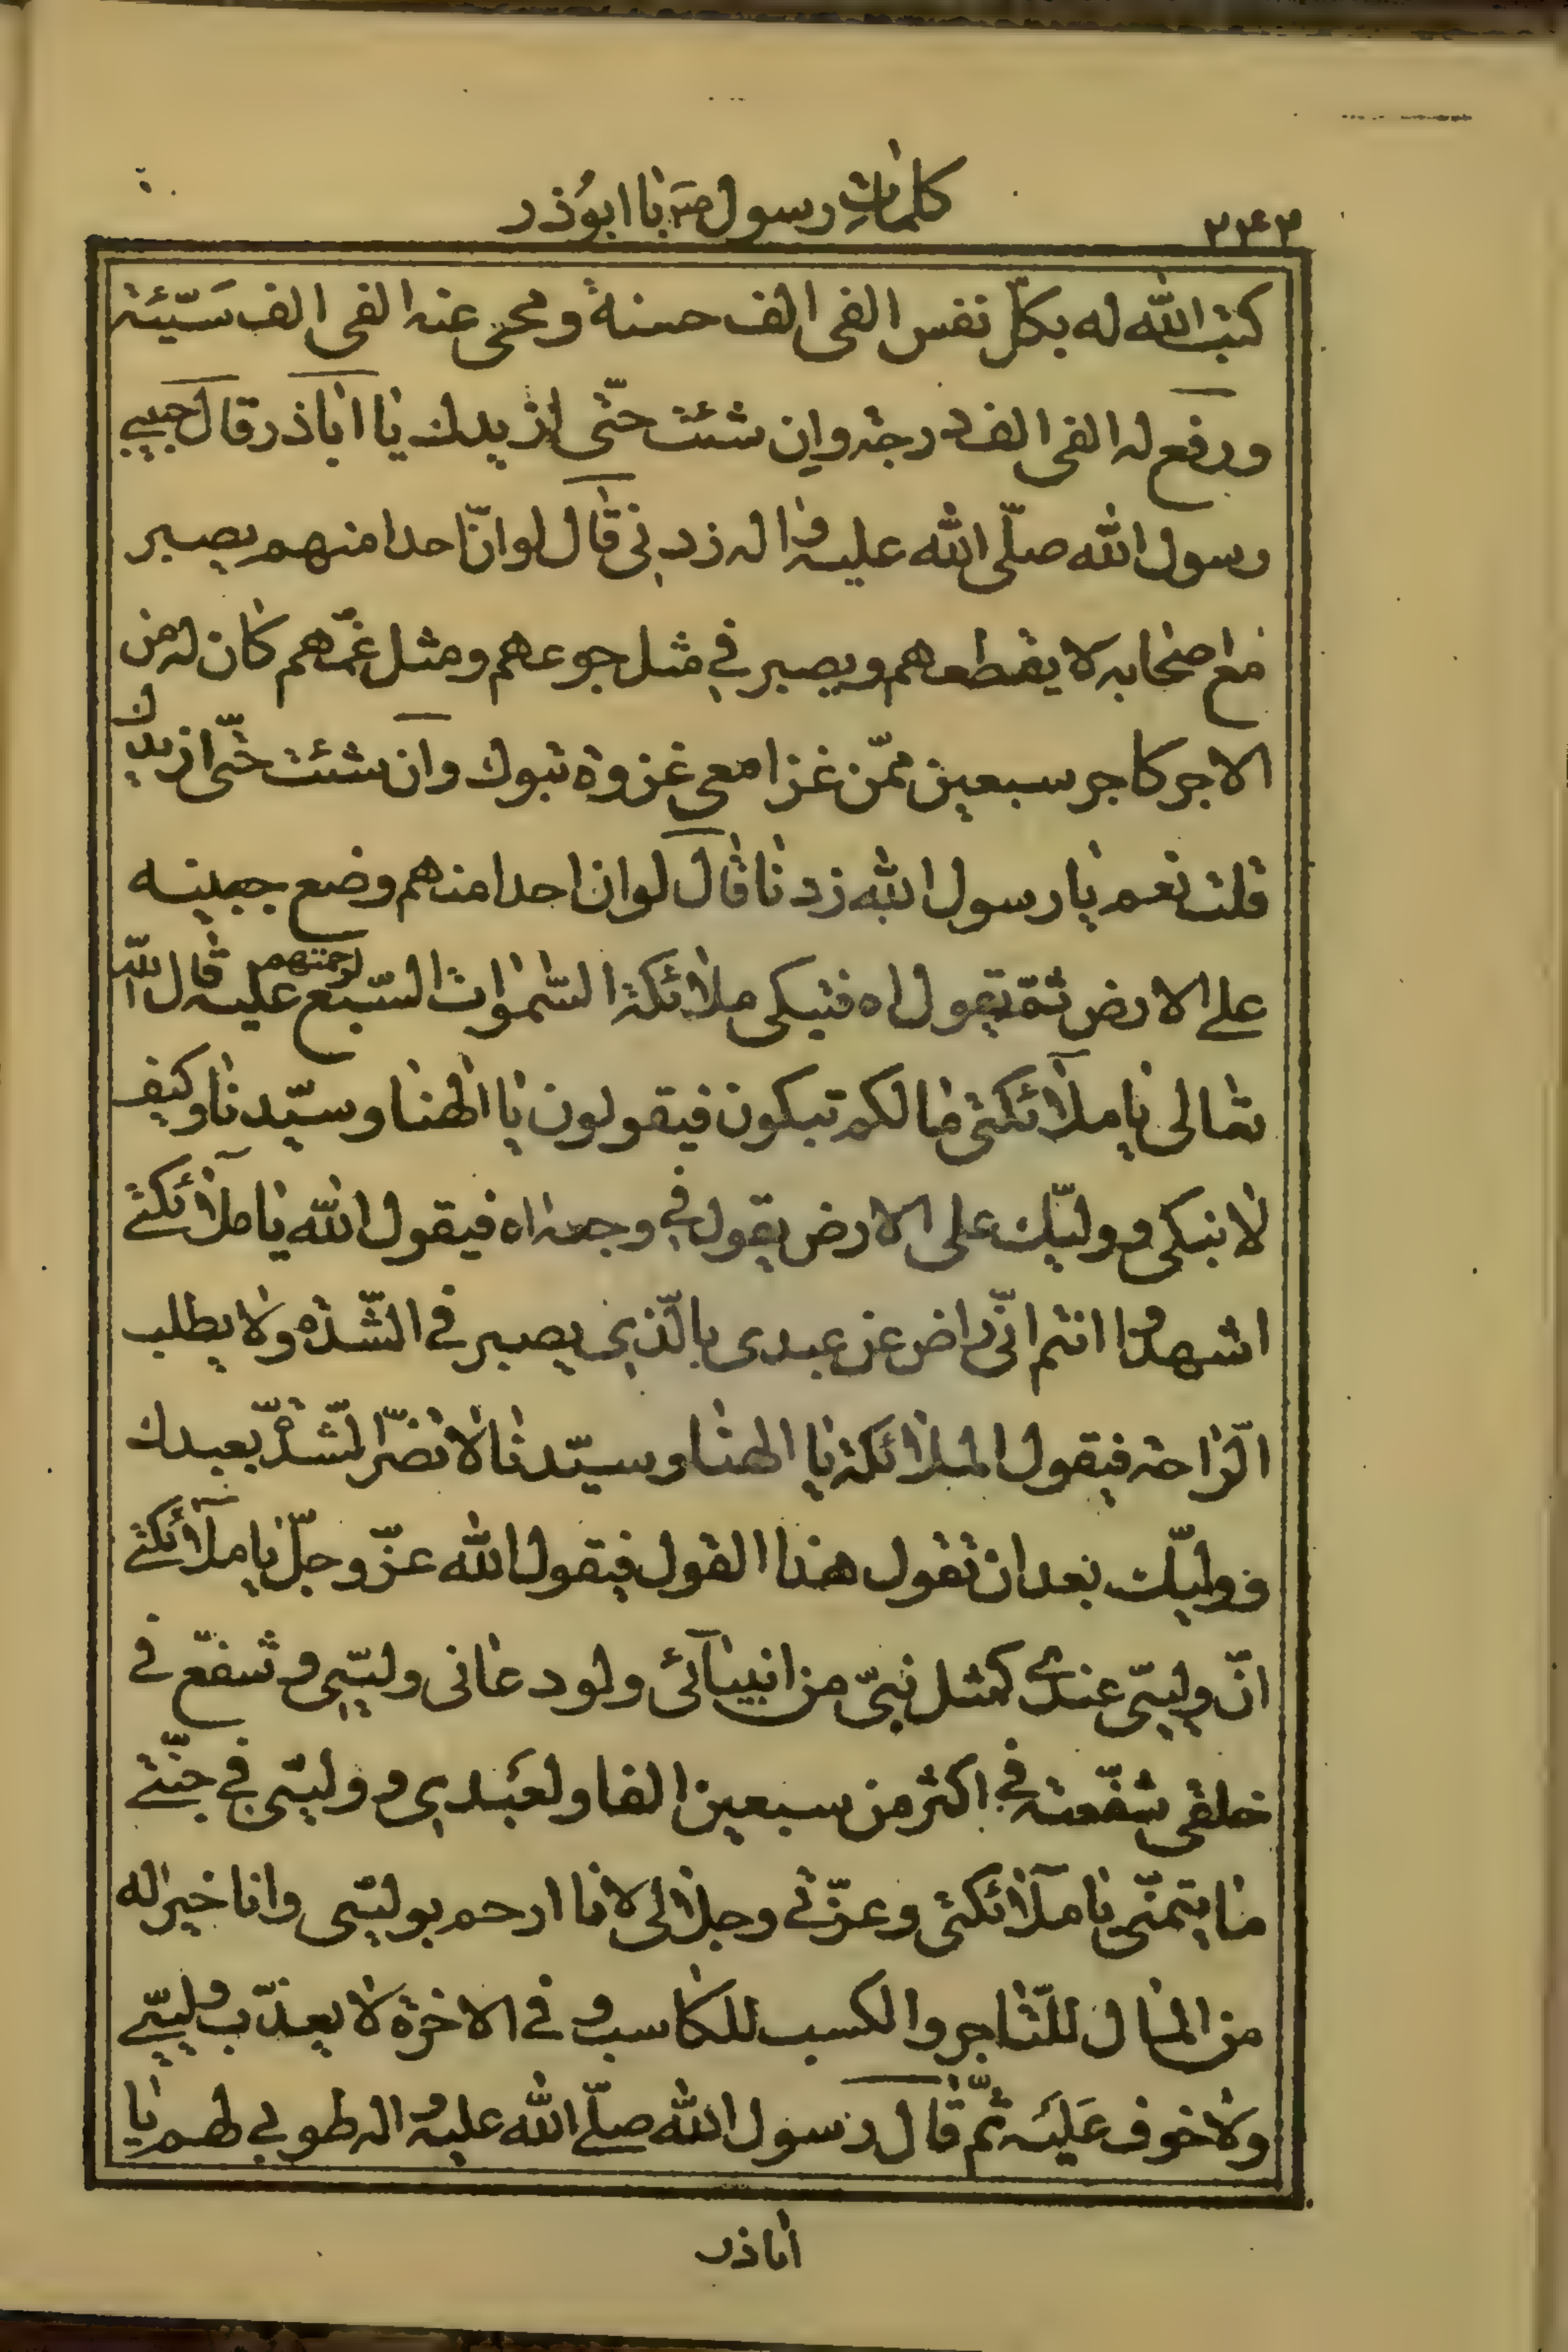 كلمات رسول ص با ابوذر
كتب الله له بكلّ نفس الفى الف حسنة ومحى عنه الفى الف سَيّئة
ورفع له الفى الف درجة وان شئت حتّى ازيدك يا اباذر قال حبيبى
رسول الله صلّى الله عليه و اله زدنى قال لو انّ احدا منهم يصبر
مع اصحابه لا يقطعهم ويصبر في مثل جوعهم ومثل غمّهم كان له من
الاجر كاجر سبعين ممّن غزا معى غزوة تبوك وان شئت حتّى ازيدك
قلت نعم يا رسول الله زدنا قال لو ان احدا منهم وضع جبينه
على الارض ثمّ يقول اه فتبكى ملائكة السّموات السّبع لرحمتهم عليه قال الله
تعالى يا ملائكتى ما لكم تبكون فيقولون يا الهنا وسيّدنا وكيف
لا نبكى و وليّك على الارض يقول في وجعه اه فيقول الله يا ملائكتى
اشهدوا انتم انّى راض عن عبدى بالّذى يصبر فى الشّدة ولا يطلب
الرّاحة فيقول الملائكة يا الهنا وسيّدنا لا تضرّ الشّدّة بعبدك
و وليّك بعد ان تقول هذا القول فيقول الله عزّ وجلّ يا ملائكتى
انّ وليّى عندى كمثل نبىّ من انبيائى ولو دعانى وليّى و شفّع فى
خلقى شفّعته في اكثر من سبعين الفا ولعَبدى و وليّى في جنّتى
ما يتمنّى يا ملائكتى وعزّتى وجلالى لانا ارحم بوليّى وانا خير له
من المال للتّاجر والكسب للكاسب و فى الاخرة لا يعذّب وليّى
ولا خوف عَلَيه ثمّ قال رسول الله صلّى الله عليه و اله طوبى لهم يا
اباذر